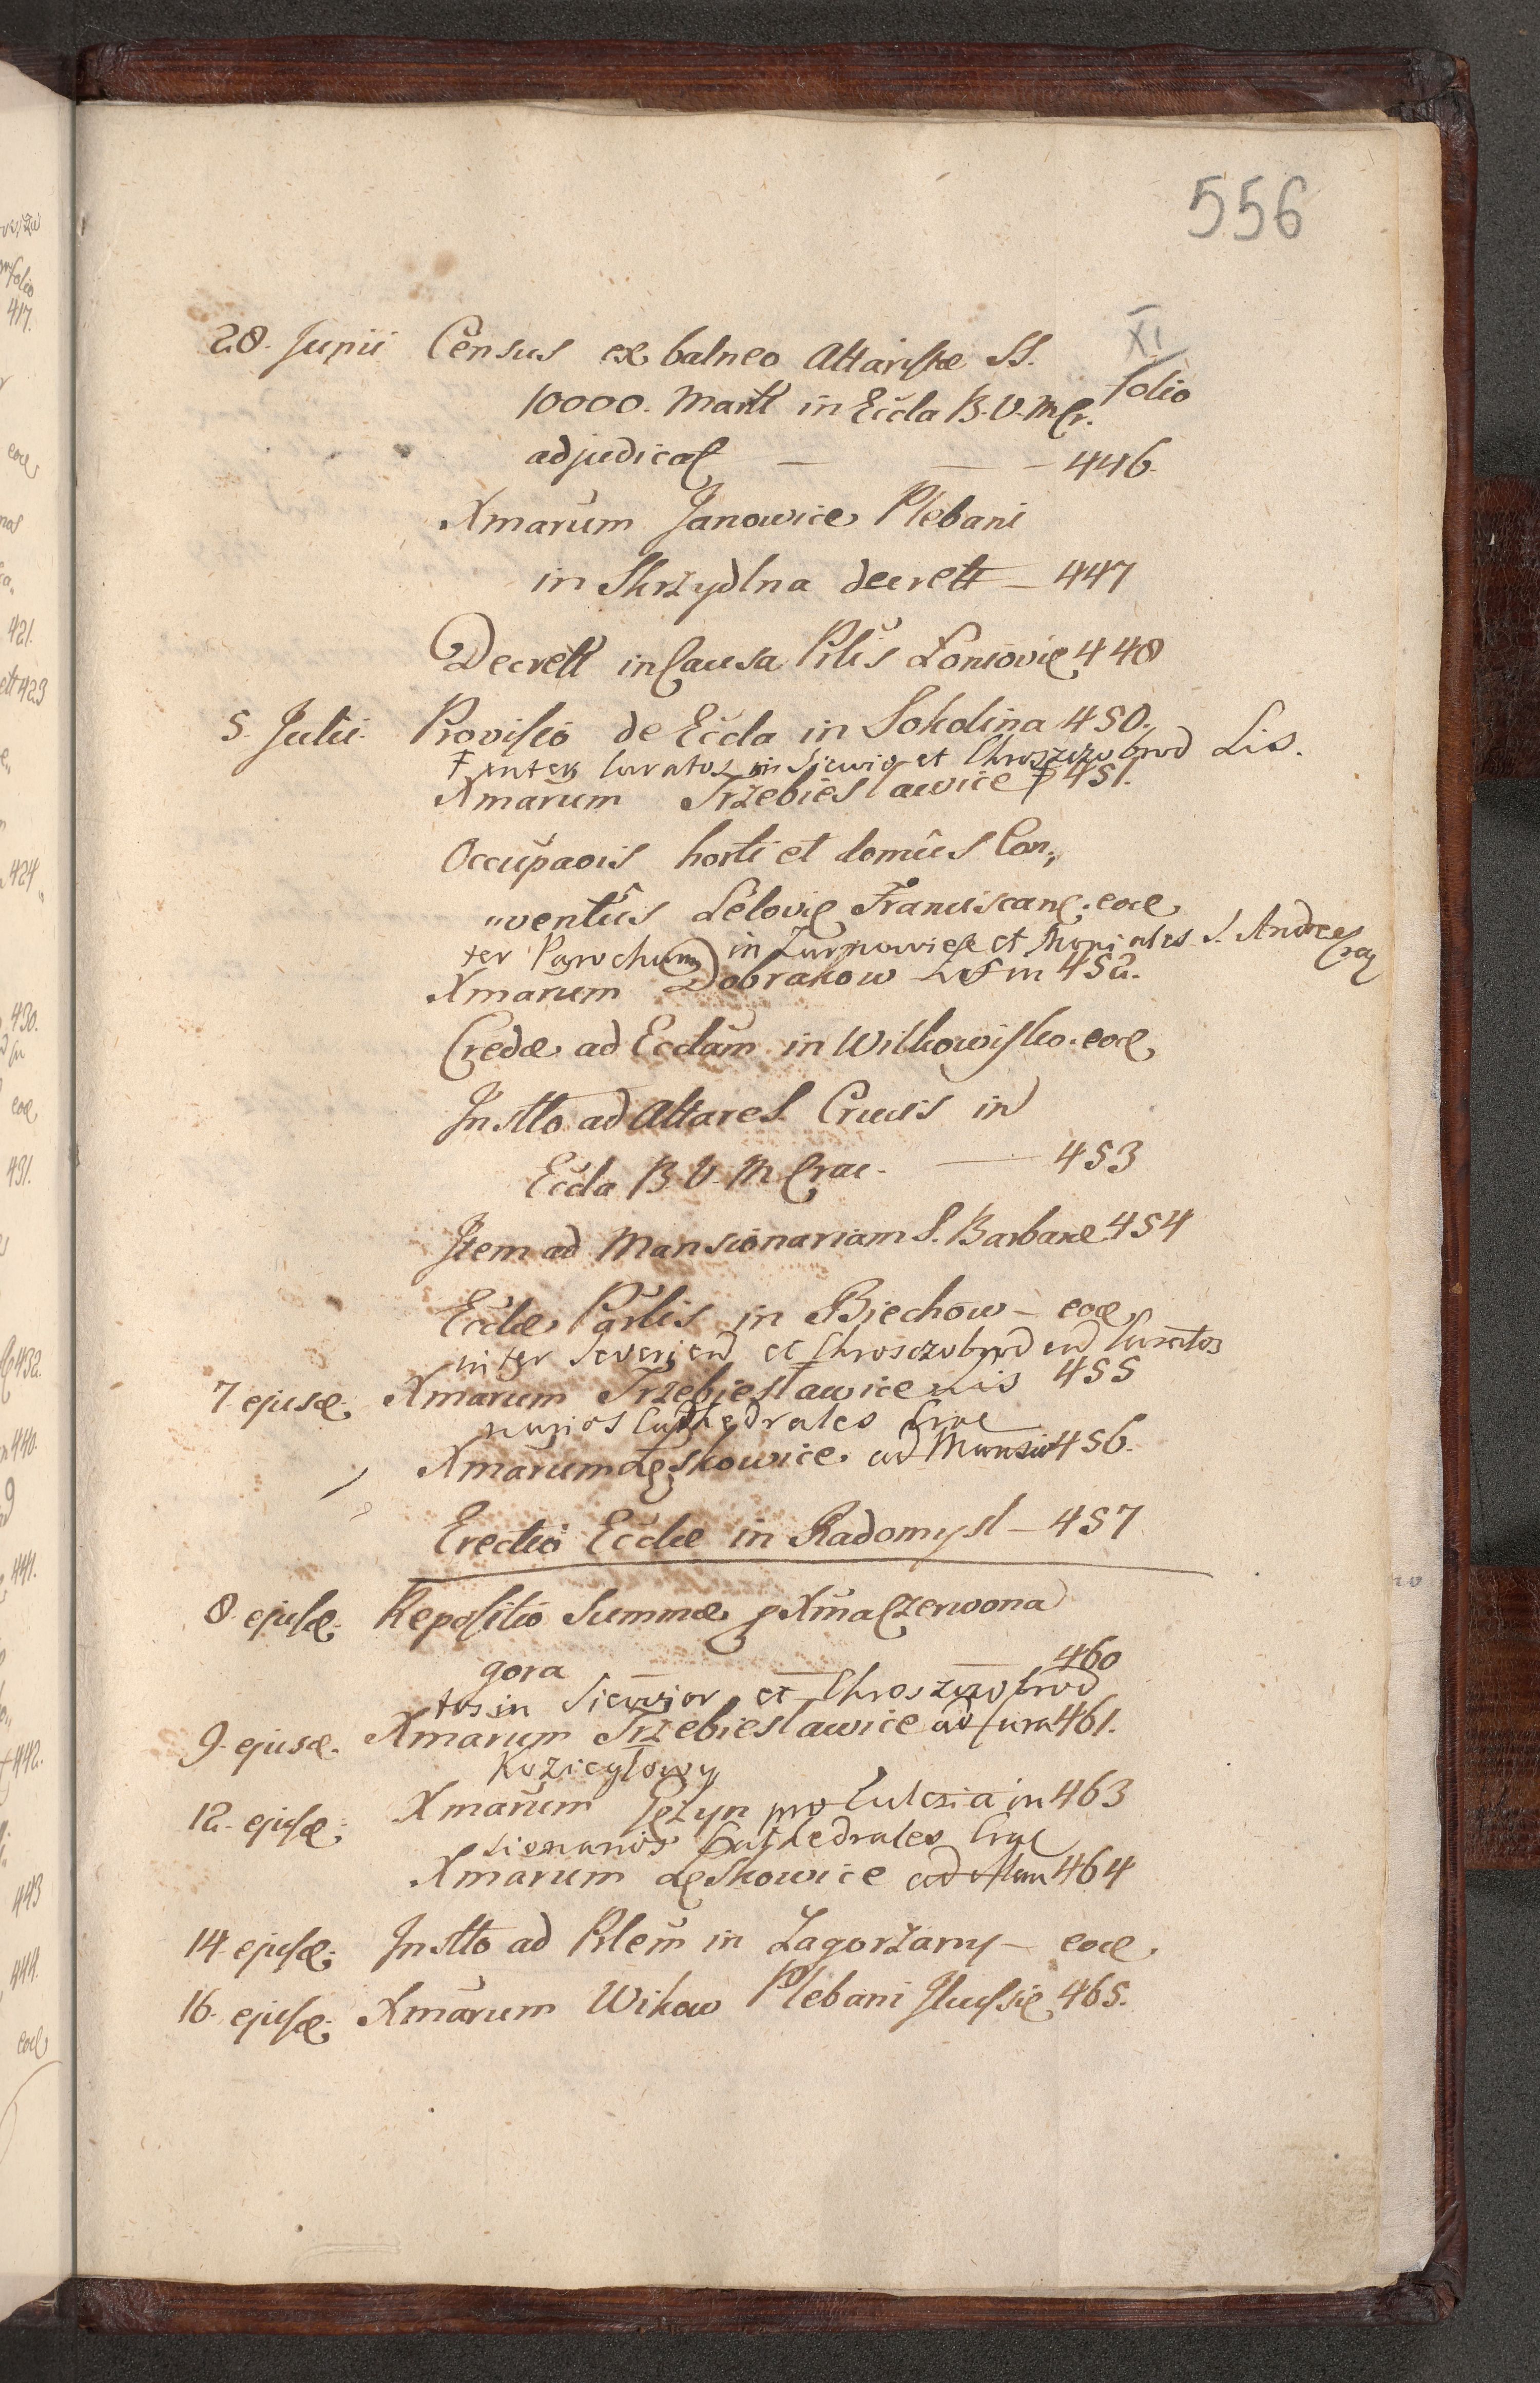 556
XI.
folio
28. Junii Census ex balneo Altaristæ SS.
10000. Martt in Eccla B. V. M Cr.
adjudicat — — 446.
Xmarum Janowice Plebani
in Skrzydlna decrett — 447
Decrett in Causa Plis Łoniovie 448
5. Julii. Provisio de Eccla in Sokolina 450.
‡ inter Curatos in Siewior et Chroszczobrod Lis.
Xmarum Trzebieslawice ‡ 451.
Occupaois horti et domûs Con„
„ventûs Leloviê Franciscanê. eoê
ter Parochum in Zarnowiec et Moniales S. Andreæ Crac
Xmarum Dobrakow Lis in 452.
Credæ ad Ecclam in Wilkowisko. eoê
Instto ad Altare S. Crucis in
Eccla B V. M Crac. — 453
Item ad Mansionariam S. Barbaræ 454
Ecclæ Parlis in Biechow — eoê
inter Severien et Chrosczobrod Curatos
7. ejusd. Xmarum Trzebieslawice Lis 455
narios Cathedrales Crac
Xmarum Lęskowice ad Mansio 456.
Erectio Ecclæ in Radomysl — 457
8. ejusd. Repositio Summæ p Xma Czerwona
gora — — — 460
tos in Siewior et Chroszczobrod
9. ejusd. Xmarum Trzebieslawice ad Cura 461.
Koziegłowy
12. ejusd. Xmarum Gęzyn pro Eclesia in 463
sionarios Cathedrales Crac
Xmarum Lęskowice ad Man 464
14 ejusd. Instto ad Plem in Zagorzany — eoê.
16. ejusd. Xmarum Wikow Plebani Ilkussiê 465.